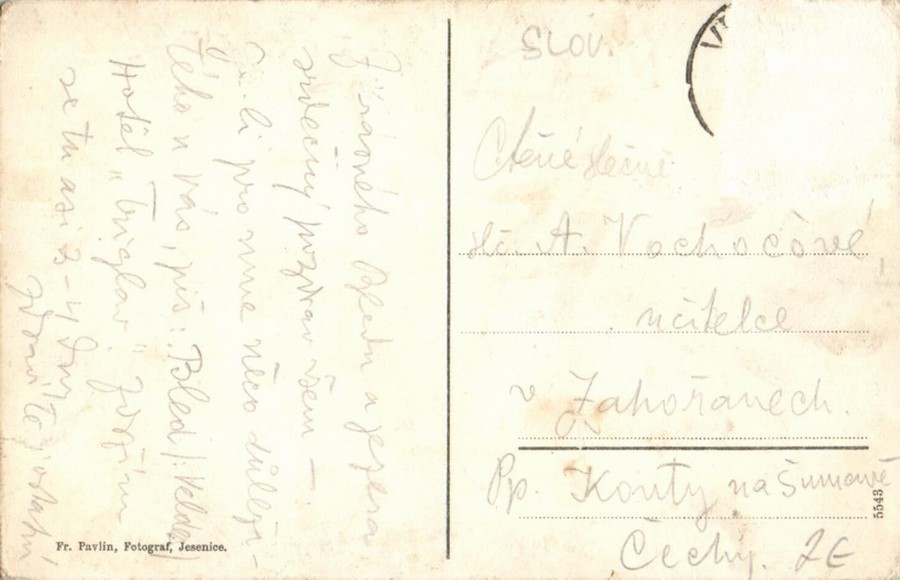 srdečný pozdrav všem —
Je-li pro mne něco důleži-
tého u vás, piš: Bled / Veldes /
Hotel "Triglav". Zdržím
se tu asi 3-4 dny.
Fr. Pavlin, Fotograf, Jesenice.
SLOV.
Ctěné slečně
sl. A. Vachočové
učitelce
v Zahořanech.
Pp. Kouty na Šumavě
Čechy.
5543